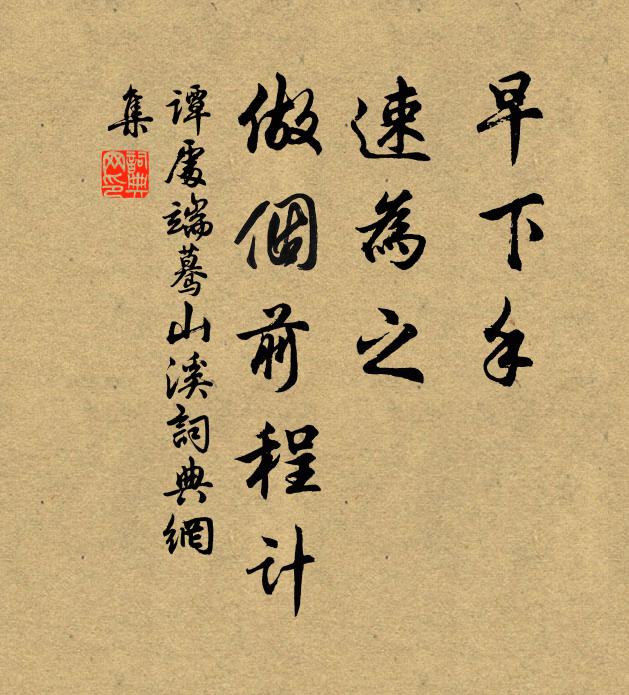 早下手
速為之
做個前程計
譚處端驀山溪詞典網
集
詞典網印